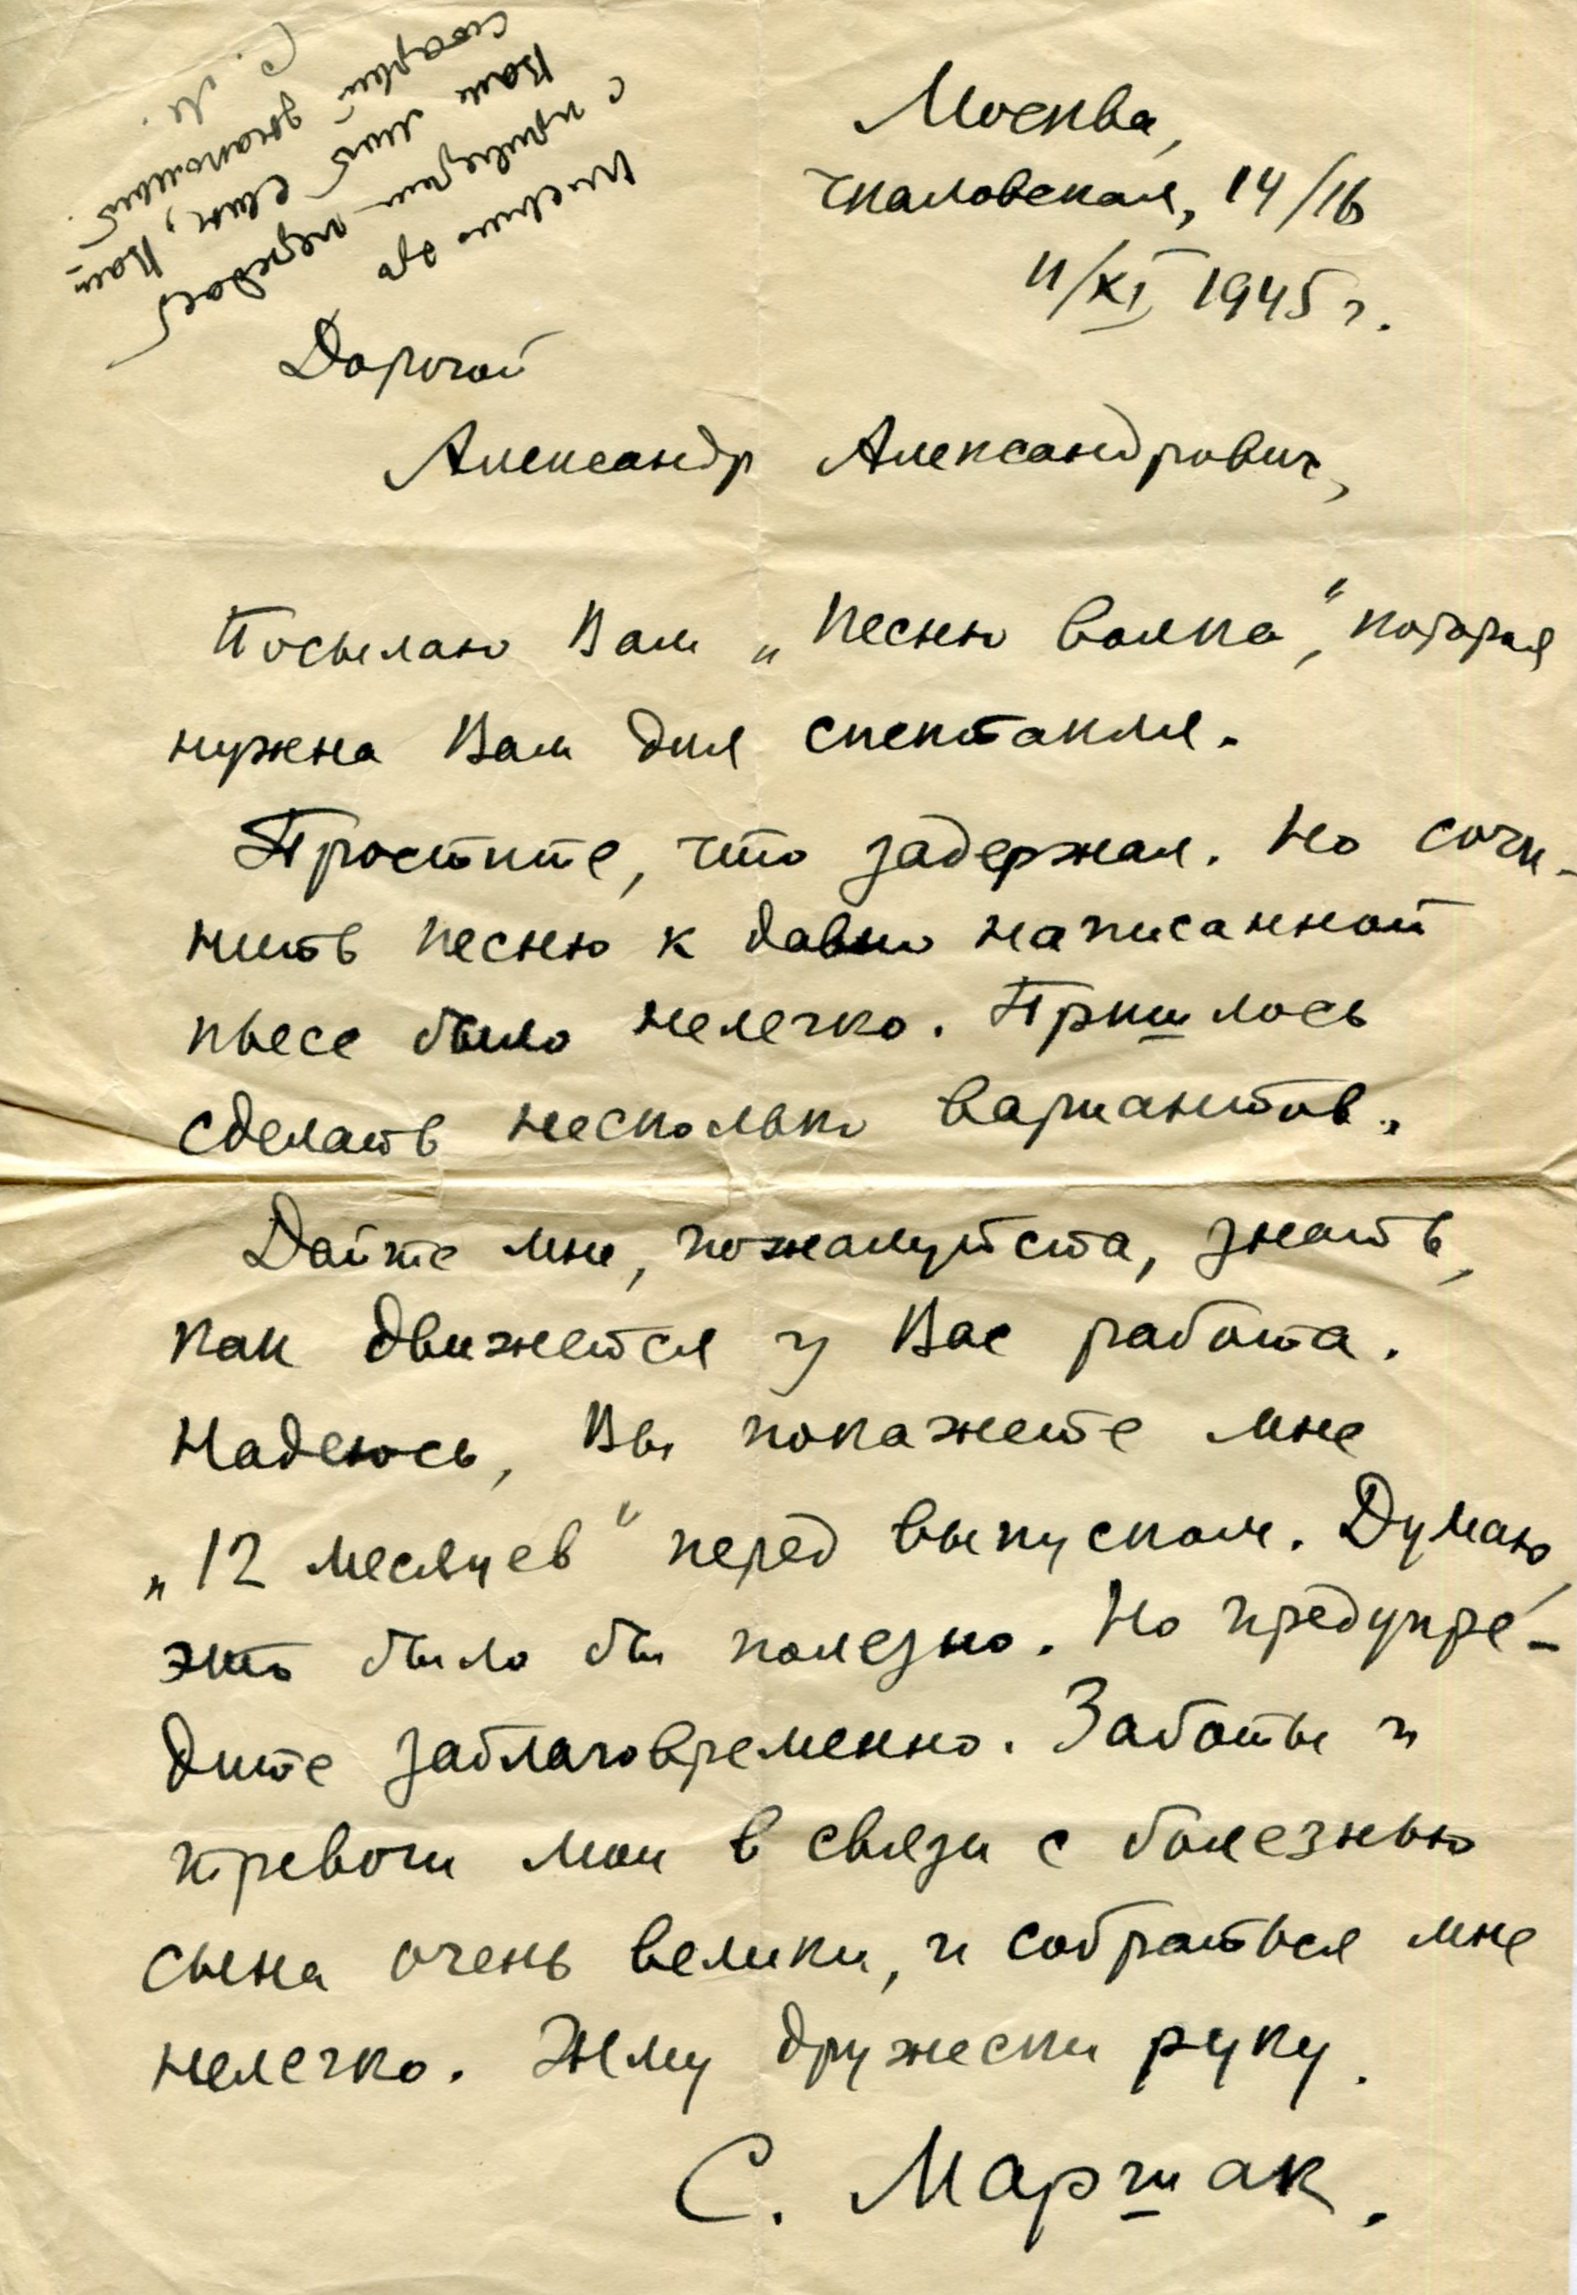 Москва,
Чкаловская, 14/16
11/XI 1945 г.
Дорогой
Александр Александрович,
Посылаю Вам „Песню волка“, которая
нужна Вам для спектакля.
Простите, что задержал. Но сочи-
нить песню к давно написанной
пьесе было нелегко. Пришлось
сделать несколько вариантов.
Дайте мне, пожалуйста, знать,
как движется у Вас работа.
Надеюсь, Вы покажете мне
„12 месяцев“ перед выпуском. Думаю,
это было бы полезно. Но предупре-
дите заблаговременно. Заботы и
тревоги мои в связи с болезнью
сына очень велики, и собраться мне
нелегко. Жму дружески руку.
С. Маршак.
Письмо
с приветом передаст
Вам мой сын, Ваш
старый знакомый.
С. М.